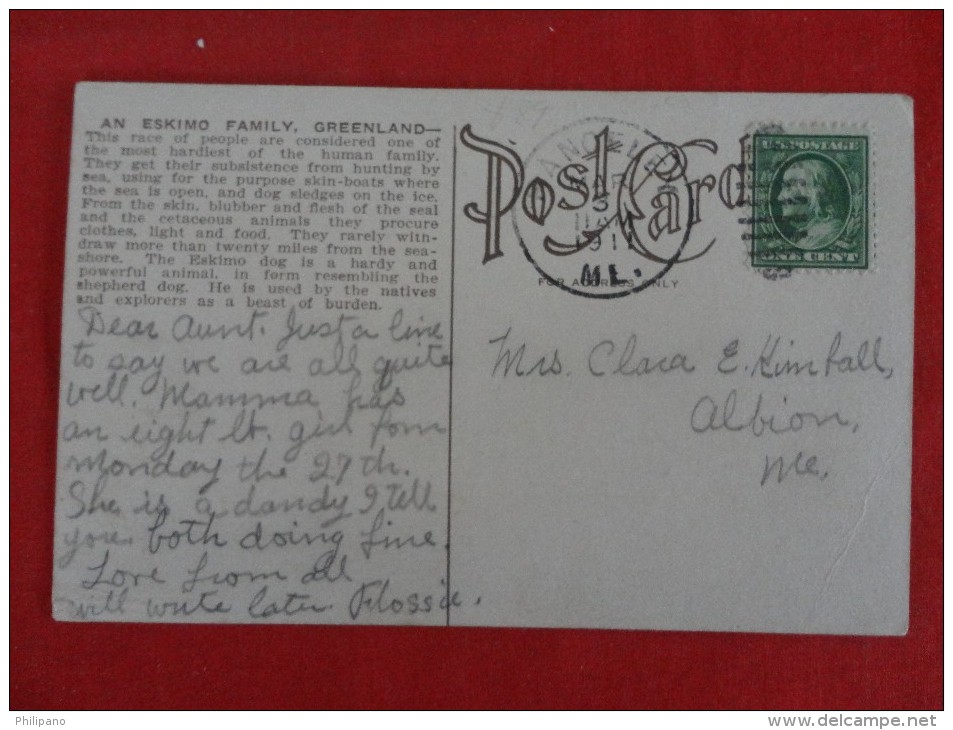 AN ESKIMO FAMILY, GREENLAND—
This race of people are considered one of
the most hardiest of the human family.
They get their subsistence from hunting by
sea, using for the purpose skin-boats where
the sea is open, and dog sledges on the ice.
From the skin, blubber and flesh of the seal
and the cetaceous animals they procure
clothes, light and food. They rarely with-
draw more than twenty miles from the sea-
shore. The Eskimo dog is a hardy and
powerful animal, in form resembling the
shepherd dog. He is used by the natives
and explorers as a beast of burden.
Dear Aunt. Just a line
to say we are all quite
well. Mamma has
an eight lb. girl born
Monday the 27th.
She is a dandy I tell
you. both doing fine.
Love from all
will write later. Flossie.
Post Card
FOR ADDRESS ONLY
1911
ME.
U.S. POSTAGE
ONE CENT
Mrs. Clara E. Kimball,
Albion,
Me.
Philipano
www.delcampe.net